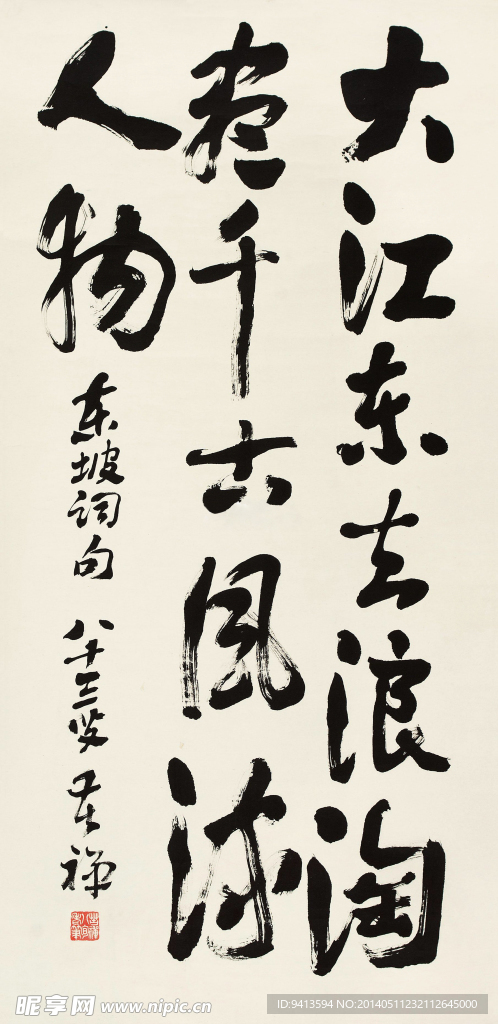 大江东去浪淘
尽千古风流
人物
东坡词句 八十三叟 苦禅
昵享网 www.nipic.cn
ID:9413594 NO:20140511232112645000